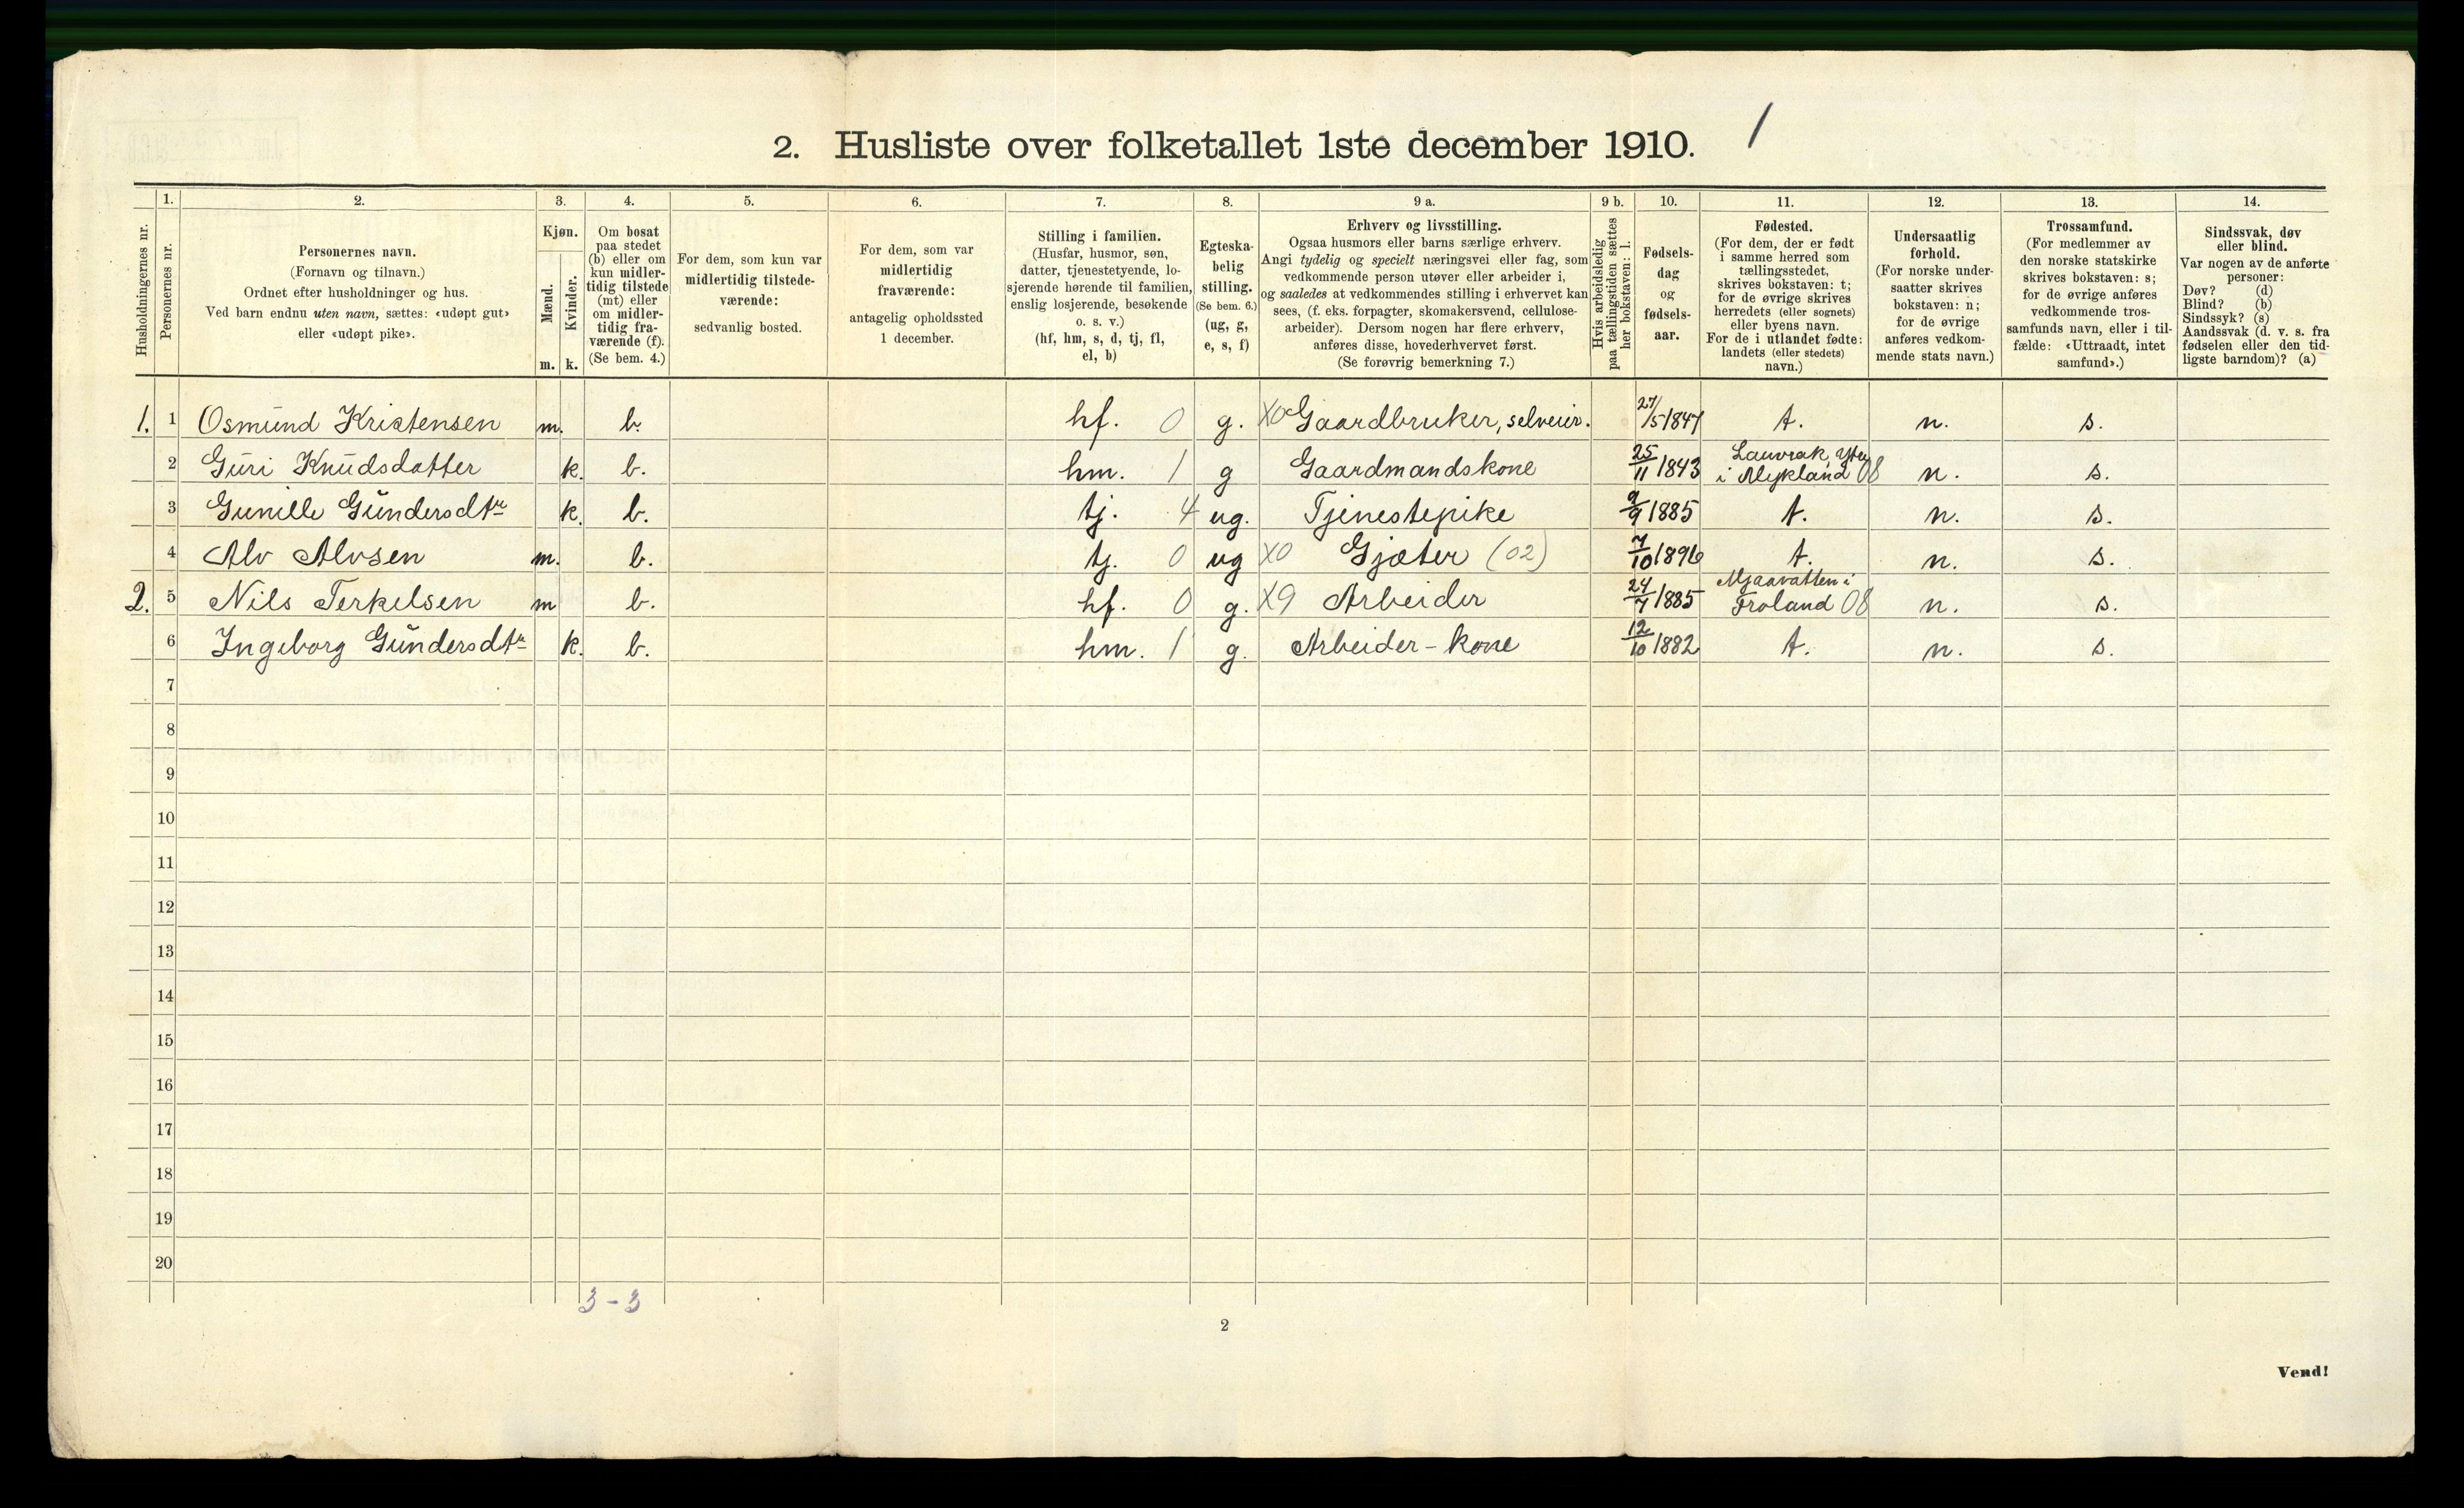 2. Husliste over folketallet 1ste december 1910. 1
Husholdningernes nr.
1. Personernes nr.
2. Personernes navn.
(Fornavn og tilnavn.)
Ordnet efter husholdninger og hus.
Ved barn endnu uten navn, sættes: «udøpt gut»
eller «udøpt pike».
3. Kjøn.
Mænd. m.
Kvinder. k.
4. Om bosat
paa stedet
(b) eller om
kun midler-
tidig tilstede
(mt) eller
om midler-
tidig fra-
værende (f).
(Se bem. 4.)
5. For dem, som kun var
midlertidig tilstede-
værende:
sedvanlig bosted.
6. For dem, som var
midlertidig
fraværende:
antagelig opholdssted
1 december.
7. Stilling i familien.
(Husfar, husmor, søn,
datter, tjenestetyende, lo-
sjerende hørende til familien,
enslig losjerende, besøkende
o. s. v.)
(hf, hm, s, d, tj, fl,
el, b)
8. Egteska-
belig
stilling.
(Se bem. 6.)
(ug, g,
e, s, f)
9 a. Erhverv og livsstilling.
Ogsaa husmors eller barns særlige erhverv.
Angi tydelig og specielt næringsvei eller fag, som
vedkommende person utøver eller arbeider i,
og saaledes at vedkommendes stilling i erhvervet kan
sees, (f. eks. forpagter, skomakersvend, cellulose-
arbeider). Dersom nogen har flere erhverv,
anføres disse, hovederhvervet først.
(Se forøvrig bemerkning 7.)
9 b. Hvis arbeidsledig
paa tællingstiden sættes
her bokstaven: l.
10. Fødsels-
dag
og
fødsels-
aar.
11. Fødested.
(For dem, der er født
i samme herred som
tællingsstedet,
skrives bokstaven: t;
for de øvrige skrives
herredets (eller sognets)
eller byens navn.
For de i utlandet fødte:
landets (eller stedets)
navn.)
12. Undersaatlig
forhold.
(For norske under-
saatter skrives
bokstaven: n;
for de øvrige
anføres vedkom-
mende stats navn.)
13. Trossamfund.
(For medlemmer av
den norske statskirke
skrives bokstaven: s;
for de øvrige anføres
vedkommende tros-
samfunds navn, eller i til-
fælde: «Uttraadt, intet
samfund».)
14. Sindssvak, døv
eller blind.
Var nogen av de anførte
personer:
Døv? (d)
Blind? (b)
Sindssyk? (s)
Aandssvak (d. v. s. fra
fødselen eller den tid-
ligste barndom)? (a)
1. 1 Osmund Kristensen m. b. hf. 0 g. X0 Gaardbruker, selveier. 27/5 1847 t. n. s.
2 Guri Knudsdatter k. b. hm. 1 g Gaardmandskone 25/11 1843 Lauvrak i Mykland 08 n. s.
3 Gunille Gundersdtr k. b. tj. 4 ug. Tjenestepike 9/9 1885 t. n. s.
4 Alv Alvsen m. b. tj. 0 ug X0 Gjæter (02) 7/10 1896 t. n. s.
2. 5 Nils Terkelsen m b. hf. 0 g. X9 Arbeider 24/7 1885 Mjaavatten i Froland 08 n. s.
6 Ingeborg Gundersdtr k. b. hm. 1 g. Arbeider-kone 12/10 1882 t. n. s.
7
8
9
10
11
12
13
14
15
16
17
18
19
20
3-3
2
Vend!